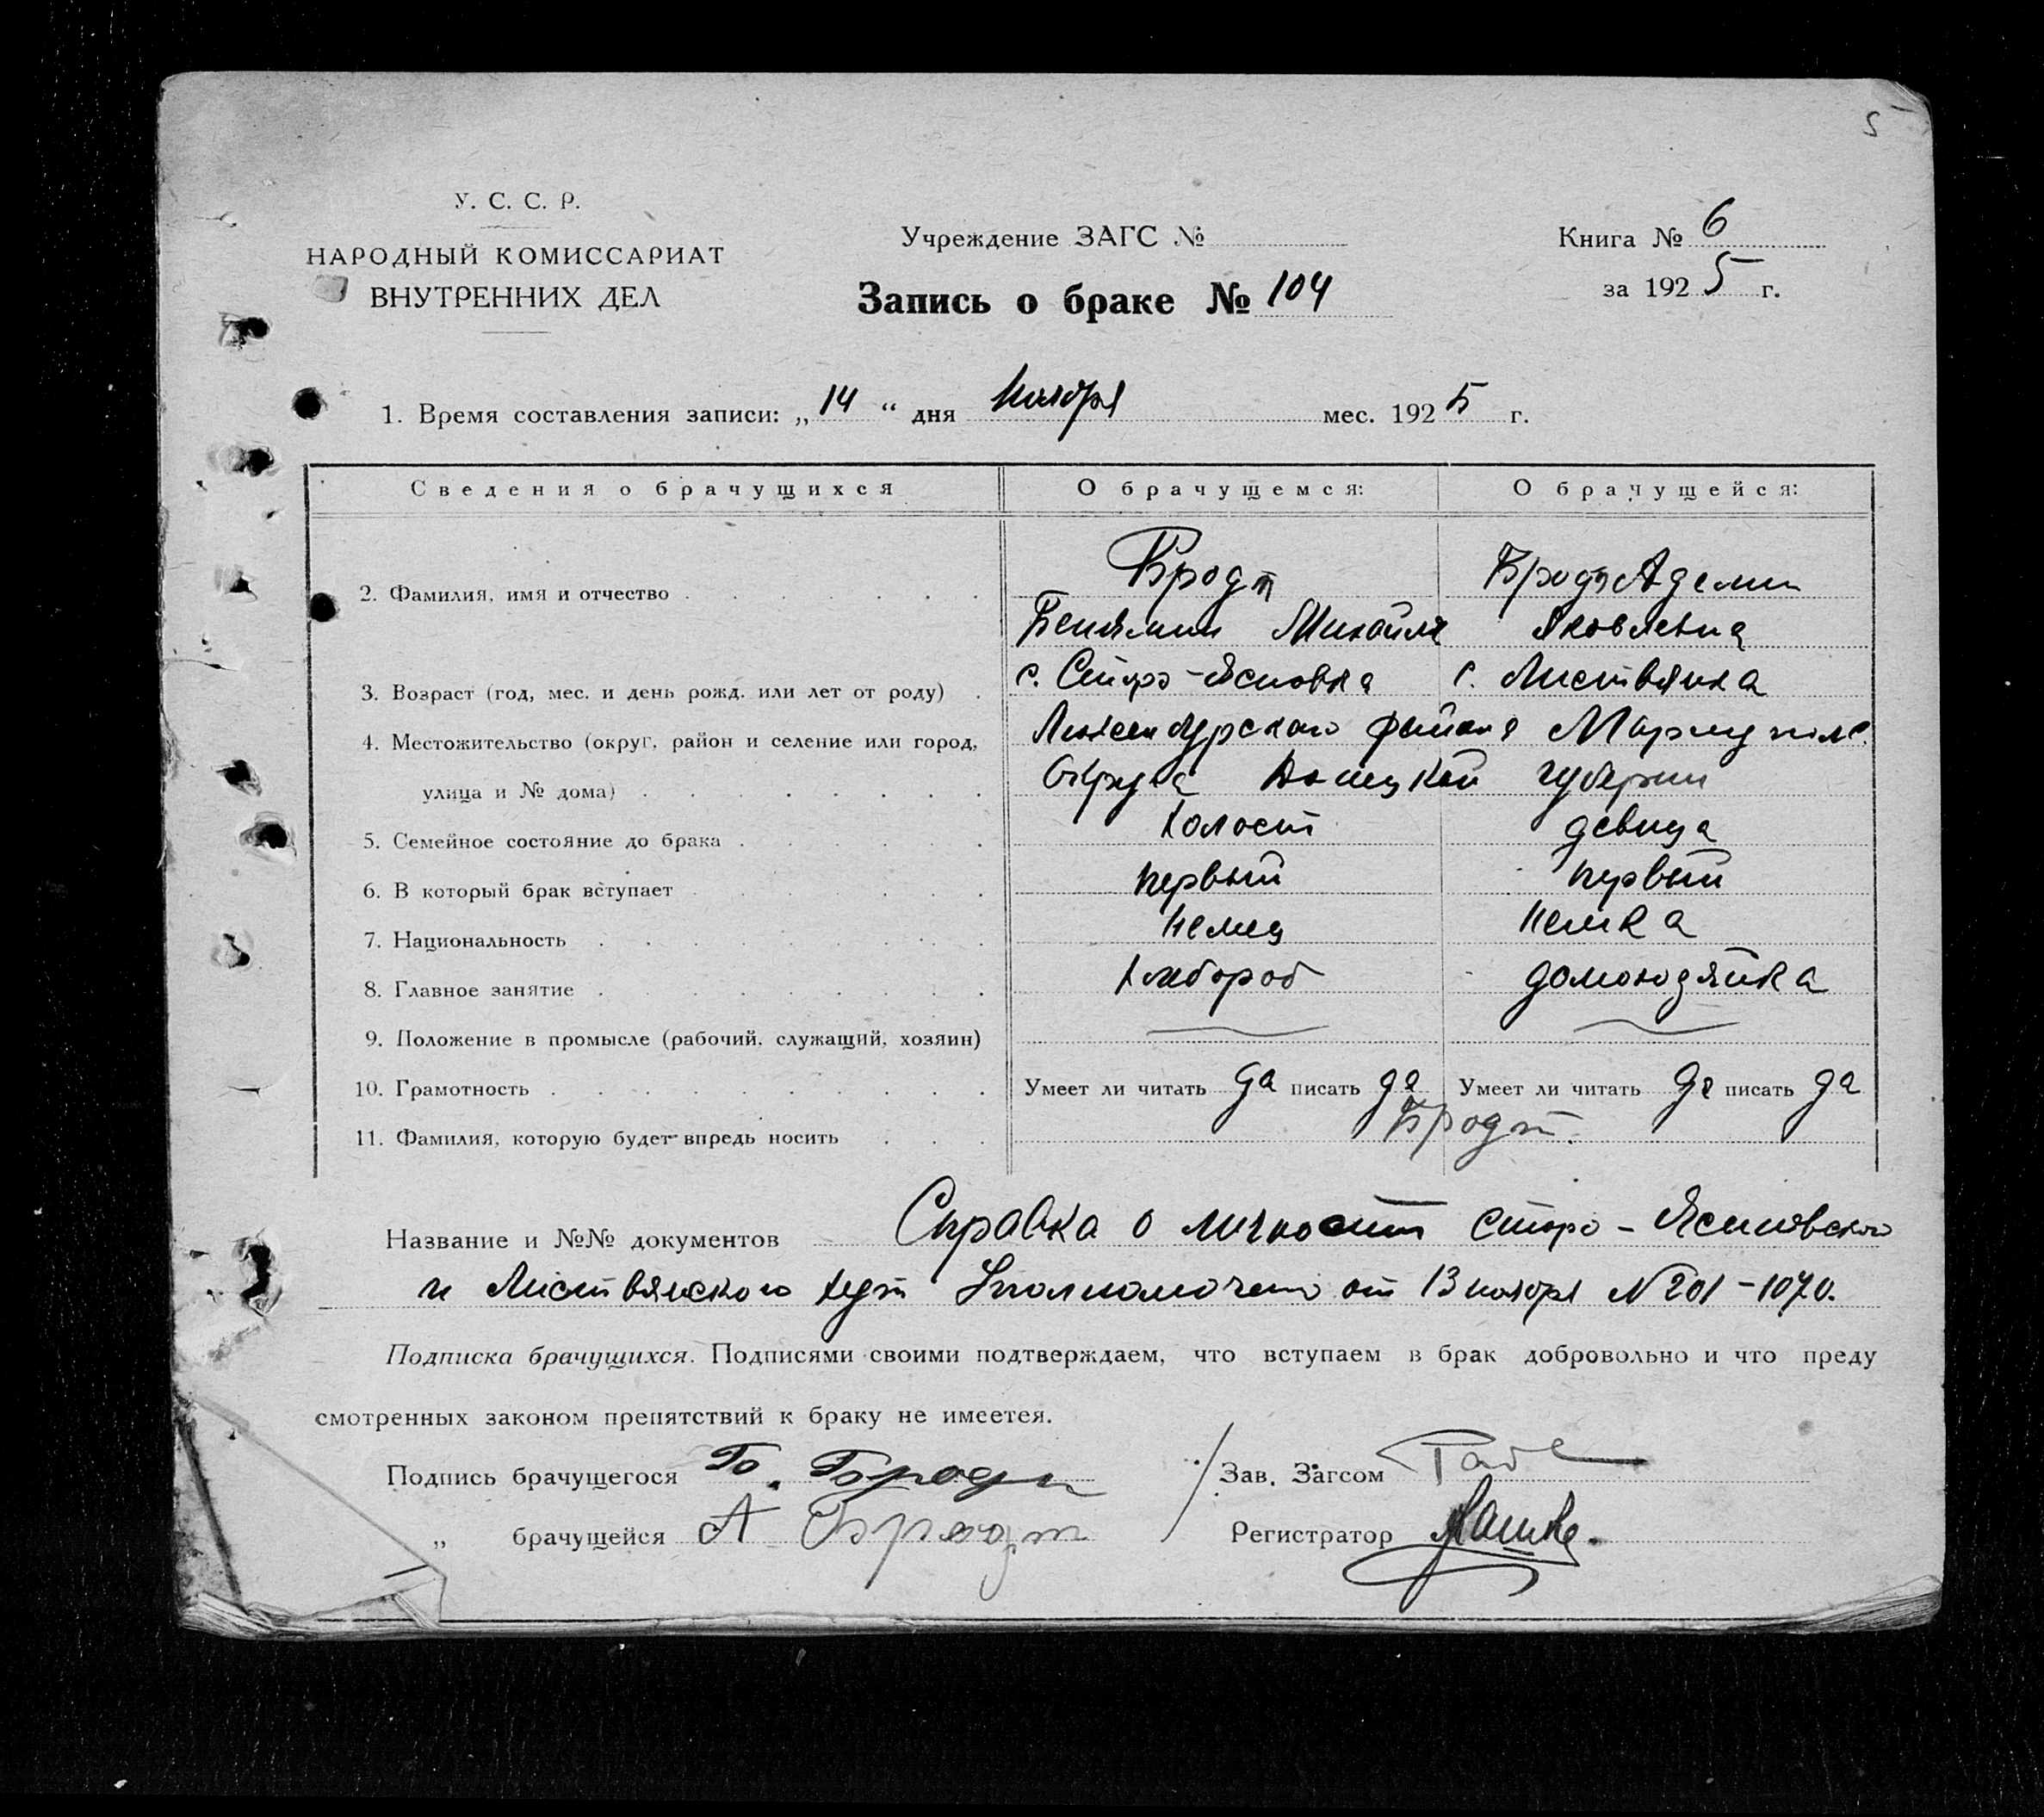 5
У. С. С. Р.
НАРОДНЫЙ КОМИССАРИАТ
ВНУТРЕННИХ ДЕЛ
Учреждение ЗАГС №
Запись о браке № 104
Книга № 6
за 1925 г.
1. Время составления записи: „14“ дня Ноября мес. 1925 г.
Сведения о брачущихся О брачущемся: О брачущейся:
2. Фамилия, имя и отчество Бродт Бродт Адели
Бениамин Михайл Яковлевна
3. Возраст (год, мес. и день рожд. или лет от роду) с. Старо-Ясиновка с. Листвянка
4. Местожительство (округ, район и селение или город, Люксембургского района Мариупол.
улица и № дома) Округа Донецкой губернии
5. Семейное состояние до брака холост девица
6. В который брак вступает первый первый
7. Национальность немец немка
8. Главное занятие хлебороб домохозяйка
9. Положение в промысле (рабочий, служащий, хозяин)
10. Грамотность Умеет ли читать да писать да Умеет ли читать да писать да
11. Фамилия, которую будет впредь носить Бродт.
Название и №№ документов Справка о личности Старо-Ясиновского
и Листвянского хут от 13 ноября N 201-1070.
Подписка брачущихся. Подписями своими подтверждаем, что вступаем в брак добровольно и что преду
смотренных законом препятствий к браку не имеетея.
Подпись брачущегося Б. Бродт Зав. Загсом
„ брачущейся А Бродт Регистратор